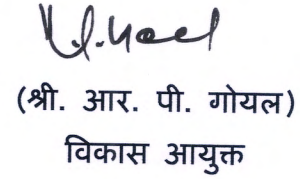 (श्री. आर. पी. गोयल)
विकास आयुक्त